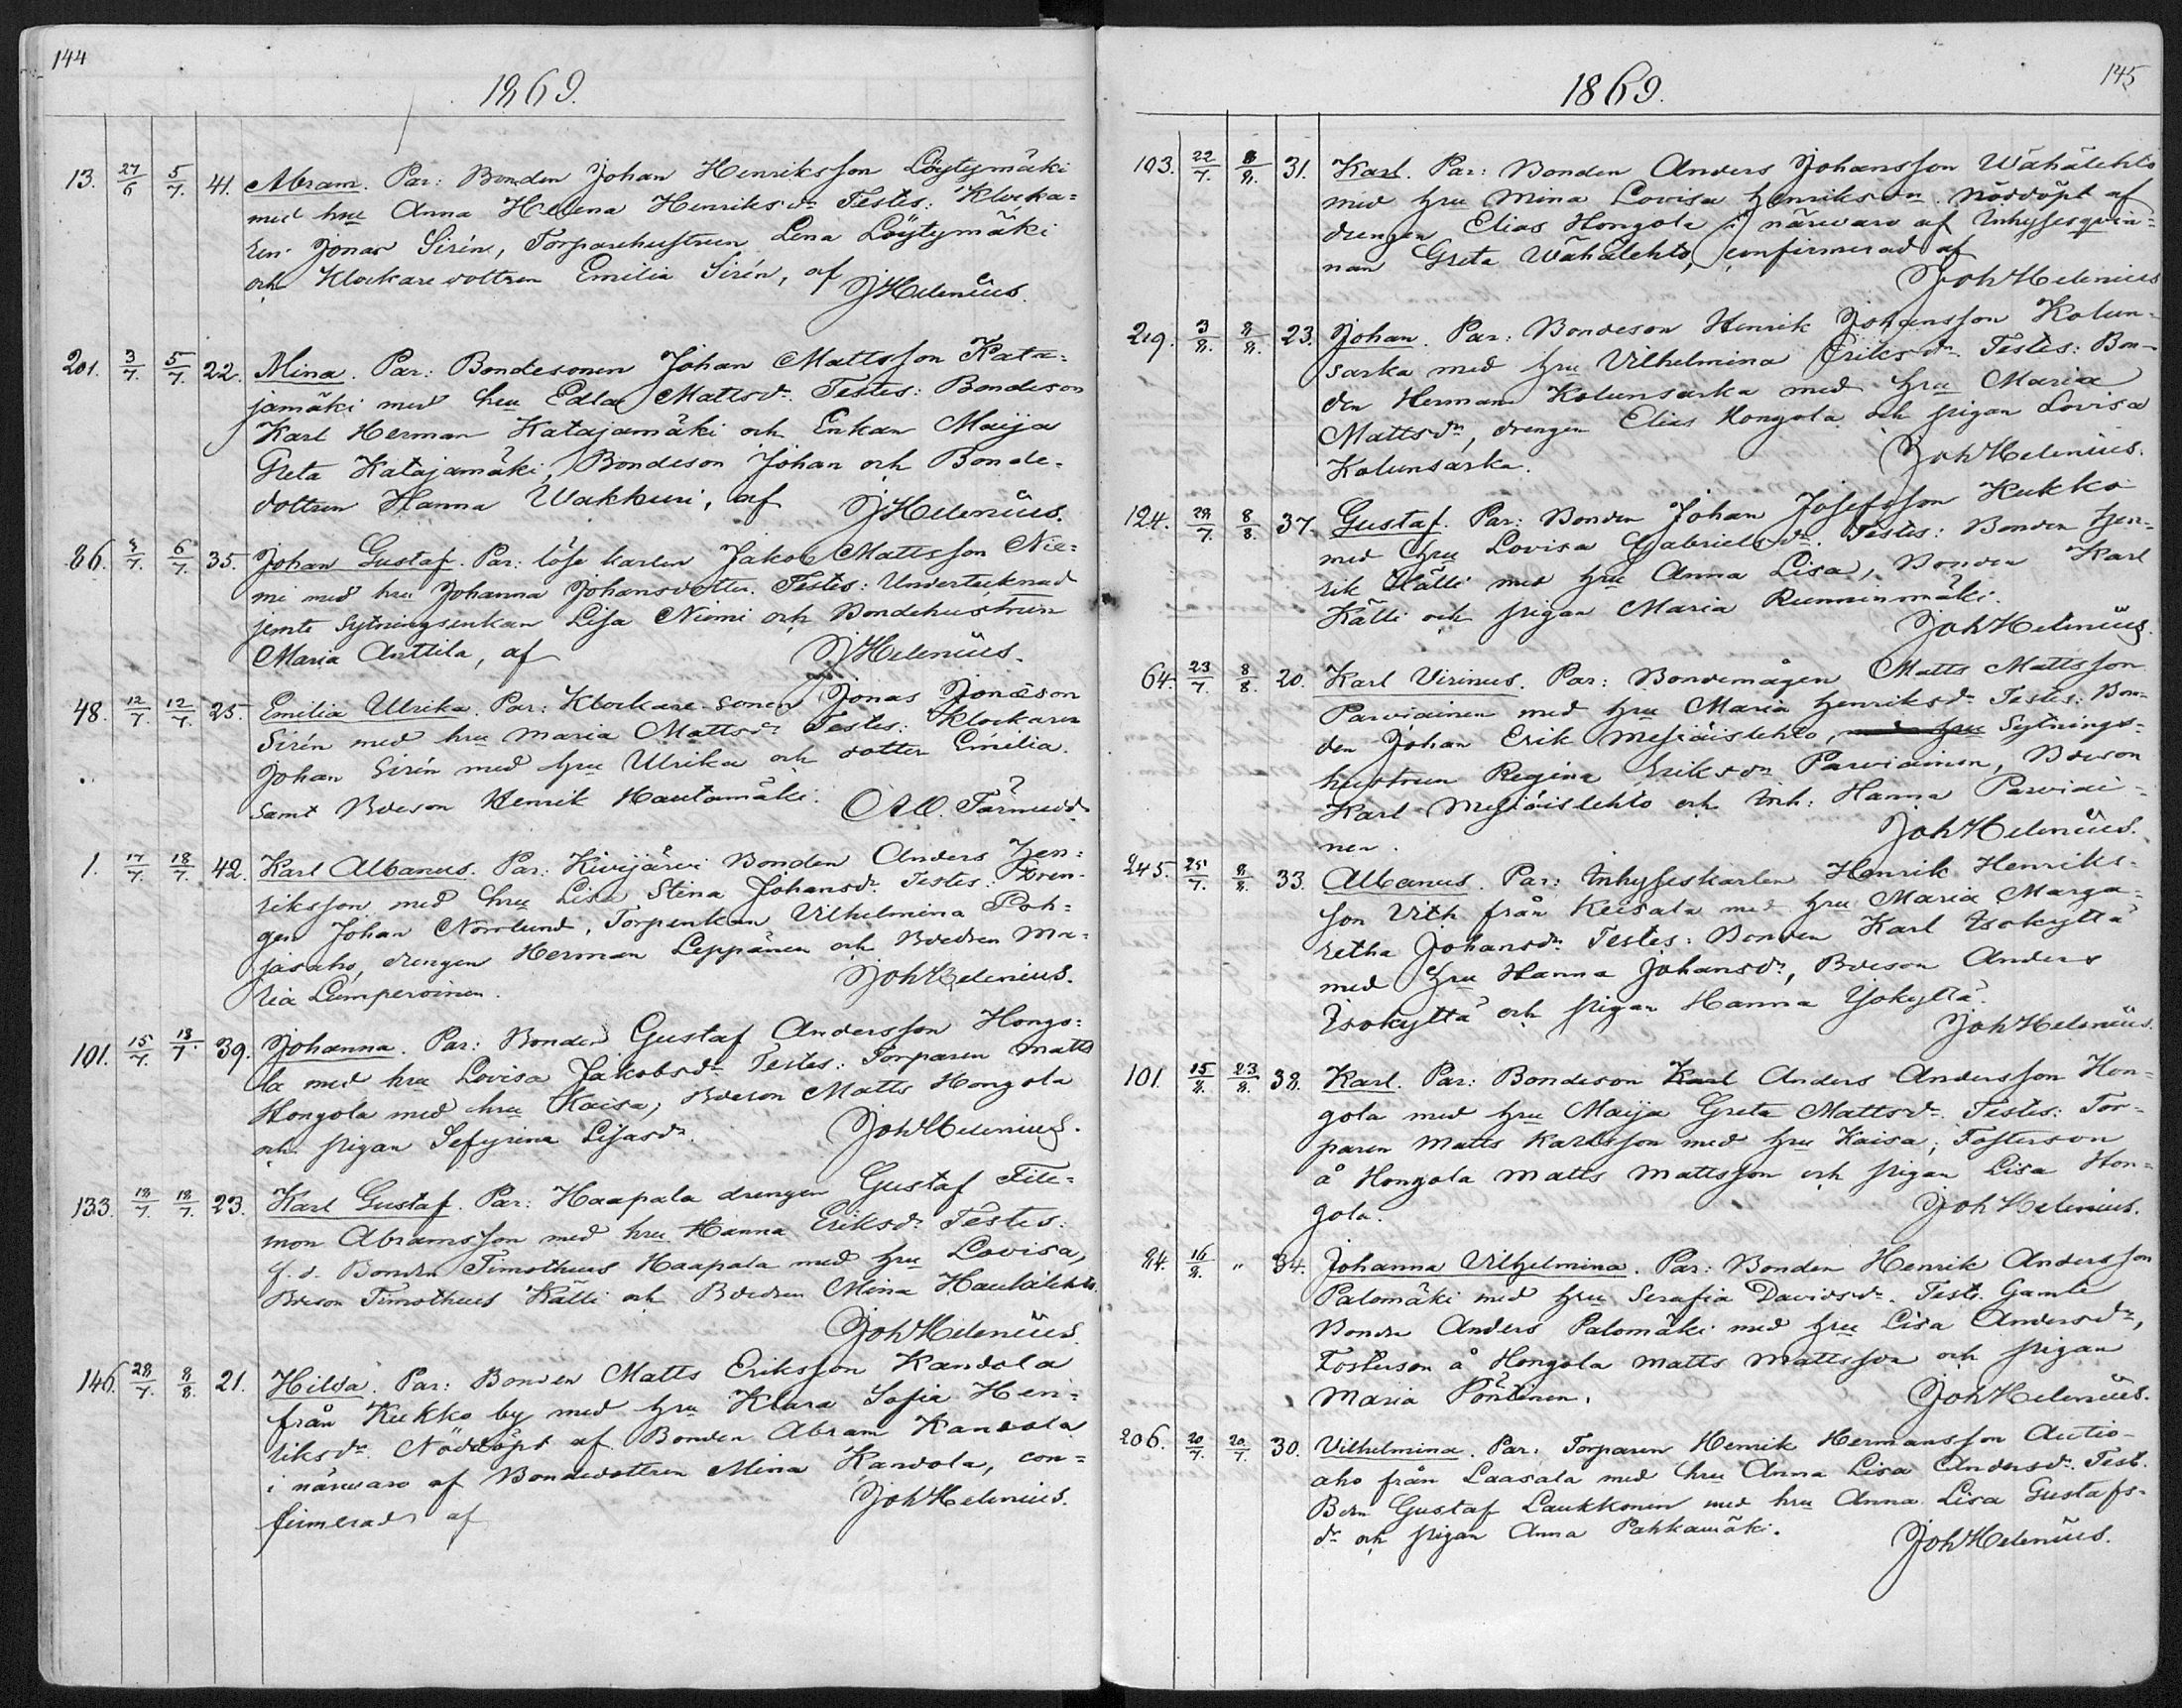 144
1869.
13. 27/6 5/7. 41. Abram. Par: Bonden Johan Henriksson Löytymäki
med hru Anna Helena Henriksdr Testes: Klocka=
ren Jonas Sirén, Torparehustrun Lena Löytymäki
och Klockaredottren Emilia Sirén, af JHelenius.
201. 3/7. 5/7. 22. Mina. Par: Bondesonen Johan Mattsson Kata=
jamäki med hru Edla Mattsdr. Testes: Bondeson
Karl Herman Katajamäki och Enkan Maija
Greta Katajamäki, Bondeson Johan och Bonde=
dottren Hanna Wakkuri, af JHelenius.
86. 4/7. 6/7. 35. Johan Gustaf. Par: löse karlen Jakob Mattsson Nie=
mi med hru Johanna Johansdotter. Testes: Undertecknad
jemte Sytningsenkan Lisa Niemi och Bondehustrun
Maria Anttila, af JHelenius.
48. 12/7. 12/7. 25. Emilia Ulrika. Par: Klockare-sonen Jonas Jonæson
Sirén med hru Maria Mattsdr Testes: Klockaren
Johan Sirén med hru Ulrika och dotter Emilia.
samt Bdeson Henrik Hautamäki.
1. 17/7. 18/7. 42. Karl Albanus. Par: Kivijärvi Bonden Anders Hen=
riksson med hru Lisa Stina Johansdr. Testes: Dren-
gen Johan Norrlund, Torpenkan Vilhelmina Poh=
jasaho, drengen Herman Leppänen och Bdedren Ma=
ria Lamperoinen. JohHelenius.
101. 15/7. 18/7. 39. Johanna. Par: Bonden Gustaf Andersson Hongo=
la med hru Lovisa Jakobsdr Testes: Torparen Matts
Hongola med hru Kaisa, Bdeson Matts Hongola
och pigan Sefyrina Lisasdr. JohHelenius.
133. 18/7. 18/7. 23. Karl Gustaf. Par: Haapala drengen Gustaf File=
mon Abramsson med hru Hanna Eriksdr Testes:
f.d. Bonden Timotheus Haapala med hru Lovisa,
Bdeson Timotheus Källi och Bdedren Mina Hautalehto.
JohHelenius.
146. 28/7. 8/8. 21. Hilda. Par: Bonden Matts Eriksson Kandola
från Kukko by med hru Klara Sofia Hen=
riksdr. Nöddöpt af Bonden Abram Kandola
i närwaro af Bondedottren Mina Kandola, con=
firmerad af JohHelenius.
145
1869.
103. 22/7. 8/8. 31. Karl. Par: Bonden Anders Johansson Wähälehto
med hru Mina Lovisa Henriksdr. Nöddöpt af
drengen Elias Hongola i närwaro af Inhysesqvin=
nan Greta Wähälehto, confirmerad af
JohHelenius
219. 3/8. 8/8. 23. Johan. Par: Bondeson Henrik Johansson Kolun-
sarka med hru Vilhelmina Eriksdr. Testes: Bon-
den Herman Kolunsarka med hru Maria
Mattsdr, drengen Elias Hongola och pigan Lovisa
Kolunsarka. JohHelenius.
124. 29/7. 8/8. 37. Gustaf. Par: Bonden Johan Josefsson Kukko
med hru Lovisa Gabrielsdr. Testes: Bonden Hen-
rik Källi med hru Anna Lisa, Bonden Karl
Källi och pigan Maria Rummunmäki.
JohHelenius.
64. 23/7. 8/8. 20. Karl Virinus. Par: Bondemågen Matts Mattsson
Parviainen med hru Maria Henriksdr Testes: Bon-
den Johan Erik Mesiäislehto, med hru Sytnings-
hustrun Regina Eriksdr Parviainen, Bdeson
Karl Mesiäislehto och Inh: Hanna Parviai-
nen. JohHelenius.
245. 25/7. 8/8. 33. Albanus. Par: Inhyseskarlen Henrik Henriks-
son Vith från Keisala med hru Maria Marga-
retha Johansdr. Testes: Bonden Karl Isokyttä
med hru Hanna Johansdr, Bdeson Anders
Isokyttä och pigan Hanna Ysokyttä.
JohHelenius.
101. 15/8. 23/8. 38. Karl. Par: Bondeson Karl Anders Andersson Hon-
gola med hru Maija Greta Mattsdr. Testes: Tor-
paren Matts Karlsson med hru Kaisa, Fosterson
å Hongola Matts Mattsson och pigan Lisa Hon-
gola. JohHelenius.
84. 16/8. " 34. Johanna Vilhelmina. Par: Bonden Henrik Andersson
Palomäki med hru Serafia Davidsdr. Tests. Gamle
Bonden Anders Palomäki med hru Lisa Andersdr,
Fosterson å Hongola Matts Mattsson och pigan
Maria Pöntinen. JohHelenius.
206. 20/7. 20/7. 30. Vilhelmina. Par: Torparen Henrik Hermansson Autio-
aho från Laasala med hru Anna Lisa Andersdr. Test.
Bdn Gustaf Laukkonen med hru Anna Lisa Gustafs-
dr och pigan Anna Pahkamäki. JohHelenius.